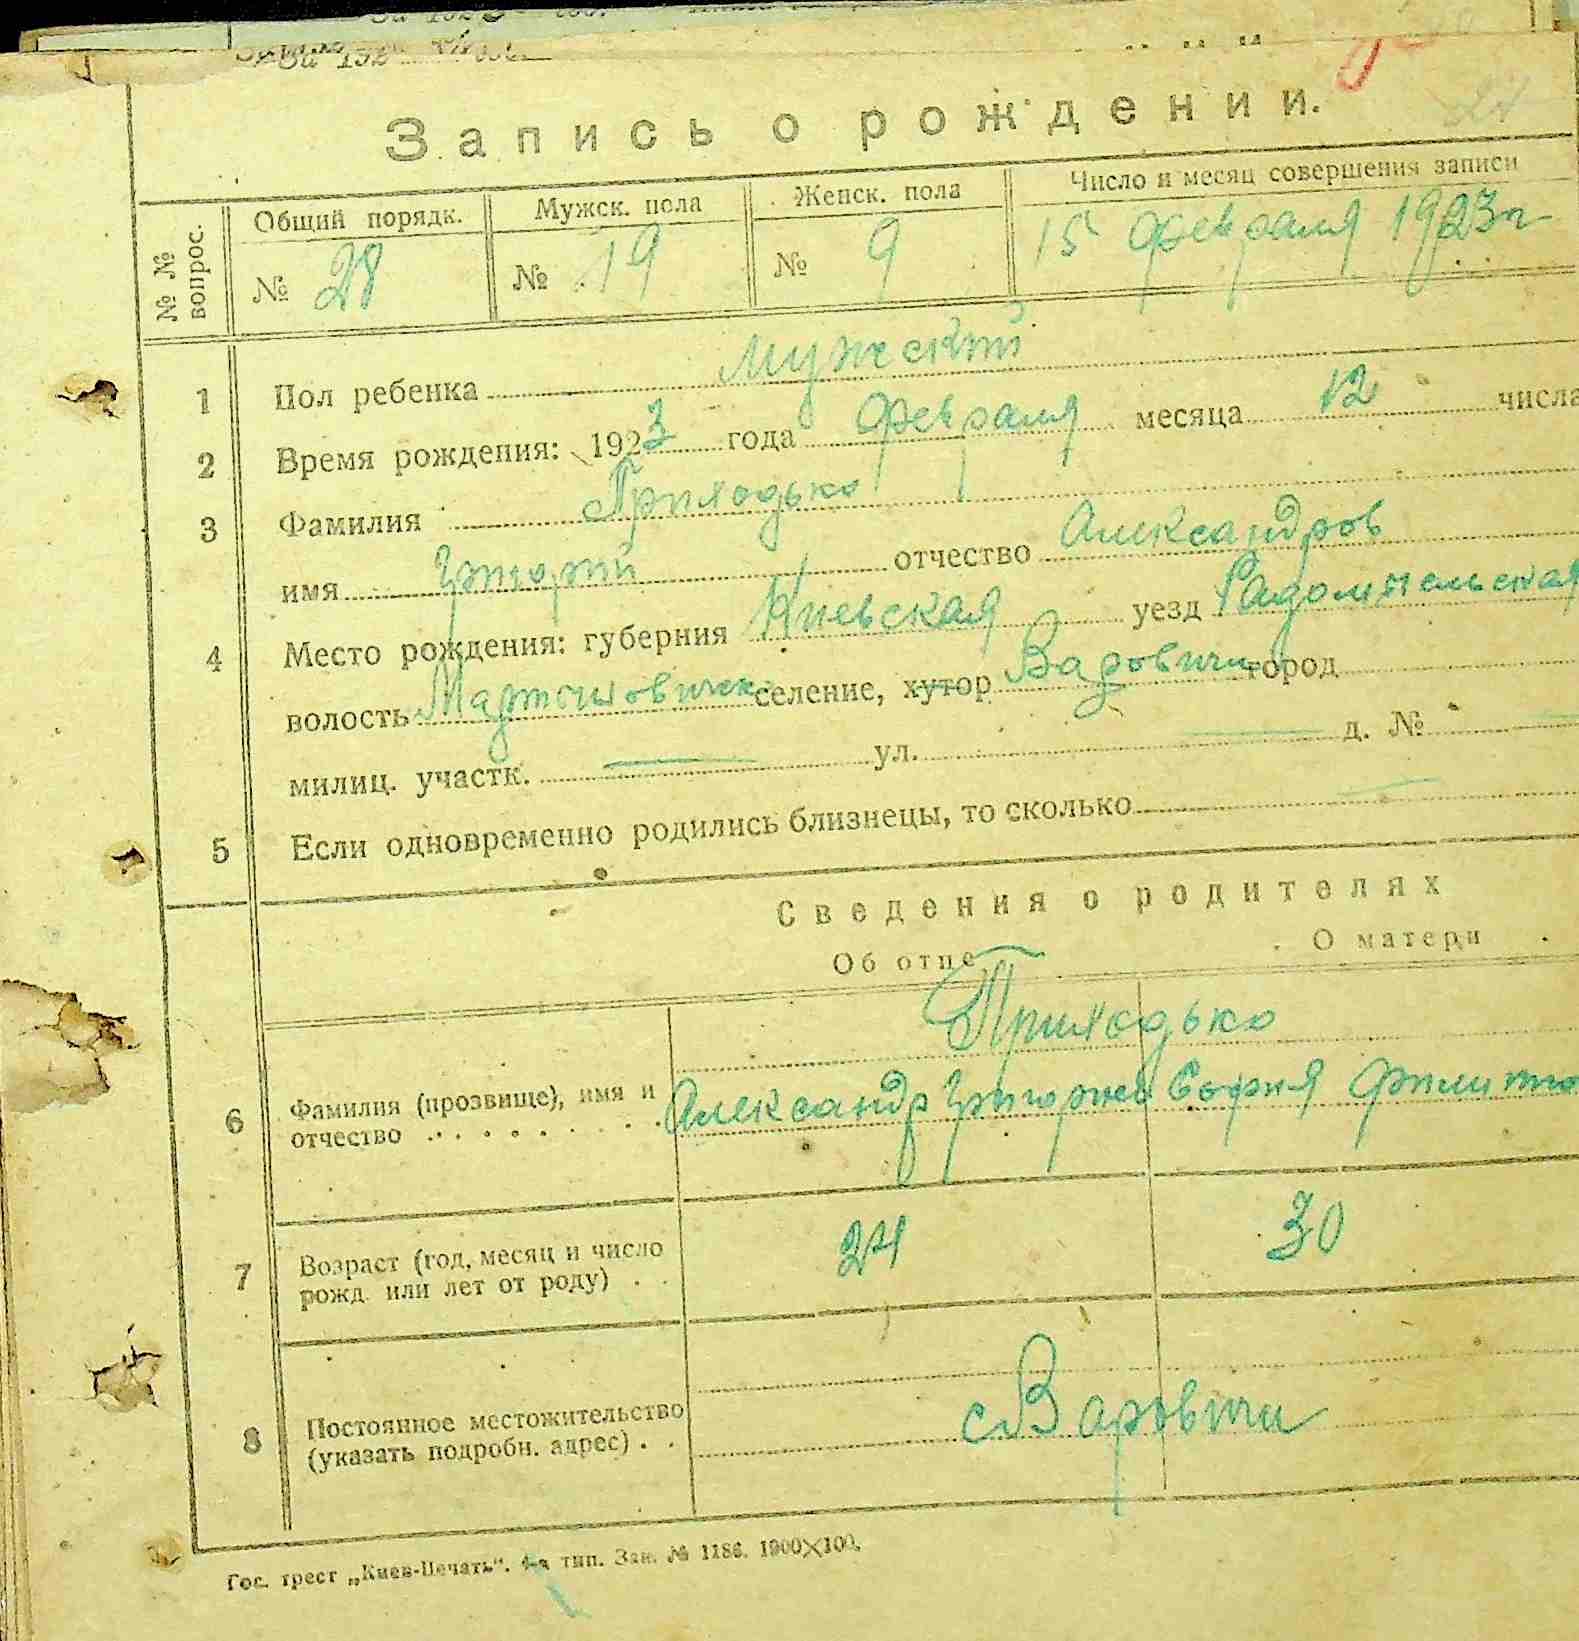 Запись о рождении.
№ № вопрос.
Общий порядк. Мужск. пола Женск. пола Число и месяц совершения записи
№ 28 № 19 № 9 15 февраля 1923 г
1 Пол ребенка Мужеский
2 Время рождения: 1923 года февраля месяца 12 числа
3 Фамилия Приходько
имя Григорий отчество Александров
4 Место рождения: губерния Киевская уезд Радомысльская
волость Мартыновическ селение, хутор Варовичи город
милиц. участк. — ул. — д. № —
5 Если одновременно родились близнецы, то сколько —
Сведения о родителях
Об отце О матери
Приходько
6 Фамилия (прозвище), имя и отчество Александр Григорьев София Филиппо
7 Возраст (год, месяц и число рожд. или лет от роду) 24 30
8 Постоянное местожительство (указать подробн. адрес) с Варовичи
Гос. трест „Киев-Печать“. 4-а тип. Зак. № 1186. 1900×100.